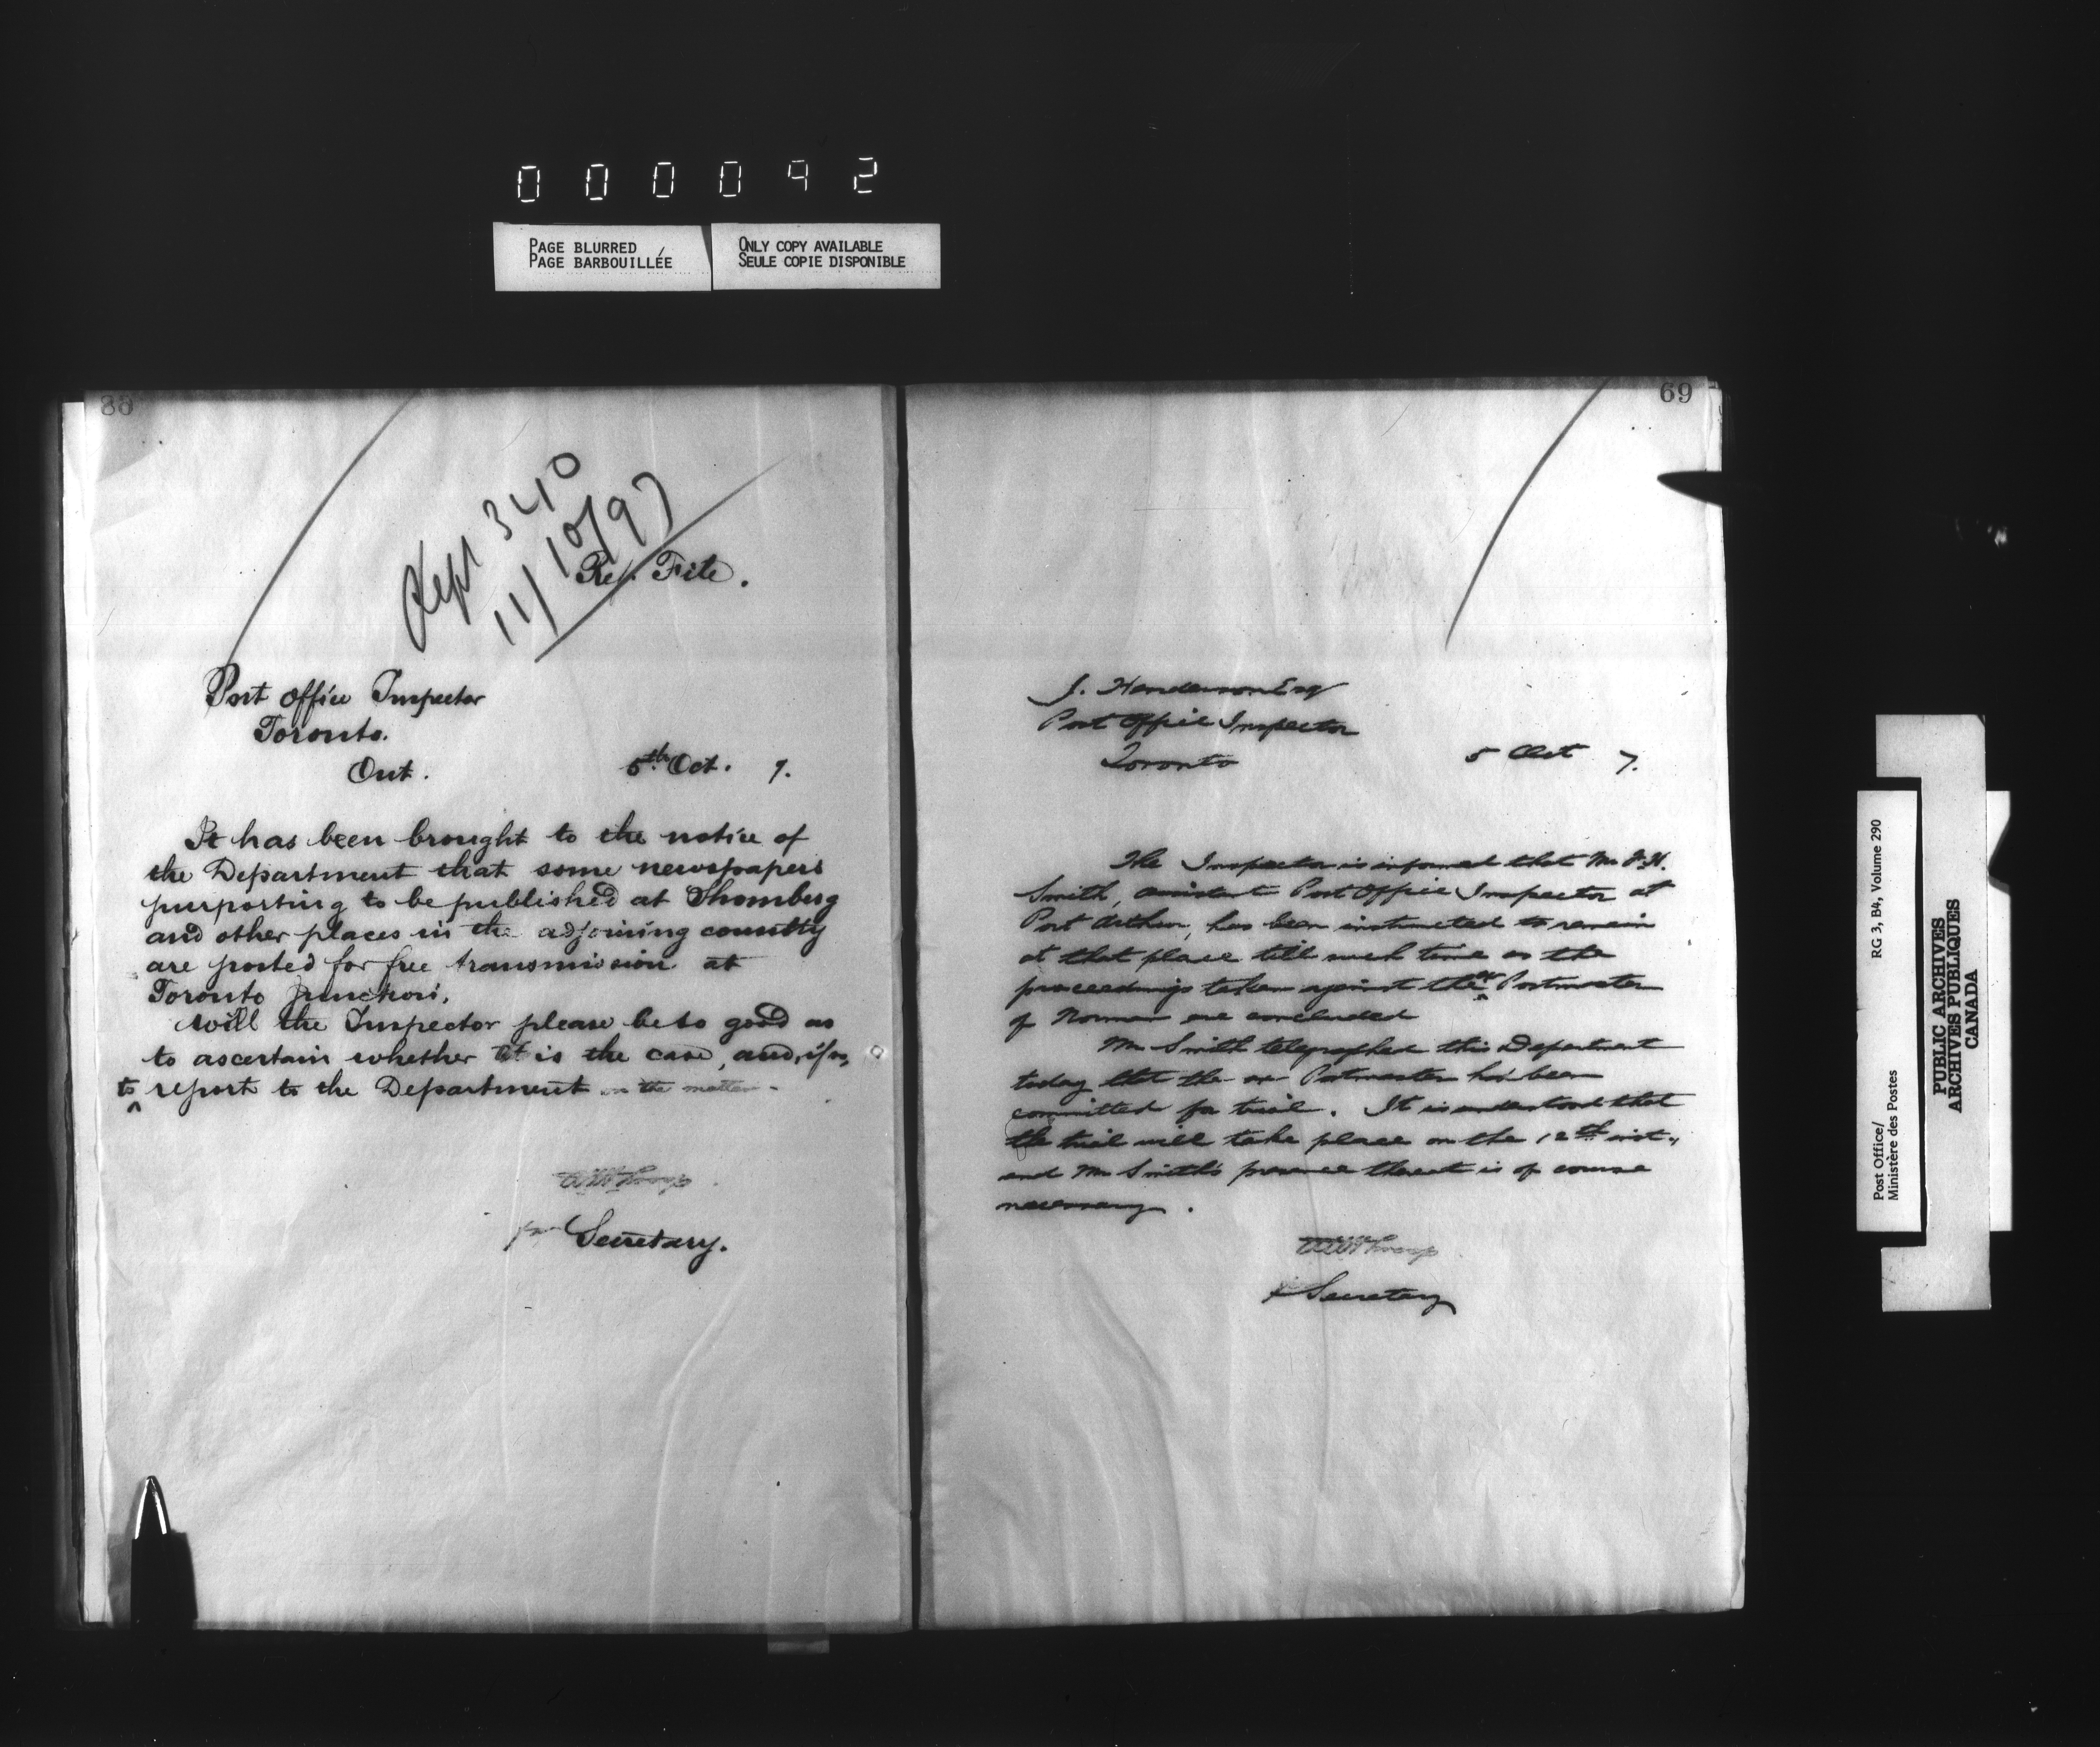 000092
PAGE BLURRED
PAGE BARBOUILLÉE
ONLY COPY AVAILABLE
SEULE COPIE DISPONIBLE
Sept 340
11/10/97
Ref. File.
Post Office Inspector
Toronto.
Ont.
5th Oct. 7.
It has been brought to the notice of
the Department that some newspapers
purporting to be published at Thornberg
and other places in the adjoining country
are posted for free transmission at
Toronto Junction.
Will the Inspector please be so good as
to ascertain whether it is the case, and, if so,
to report to the Department on the matter.
for Secretary.
69
J. Henderson Esq
Post Office Inspector
Toronto
5 Oct 7.
The Inspector is informed that Mr
Smith, assistant Post Office Inspector at
Port Arthur, has been instructed to remain
at that place till such time as the
proceedings taken against the ex Postmaster
of Norman are concluded
Mr Smith telegraphed this Department
today that the ex Postmaster had been
committed for trial. It is understood that
the trial will take place on the 12th inst.,
and Mr Smith's presence thereat is of course
necessary.
Secretary
RG 3, B4, Volume 290
Post Office/
Ministère des Postes
PUBLIC ARCHIVES
ARCHIVES PUBLIQUES
CANADA